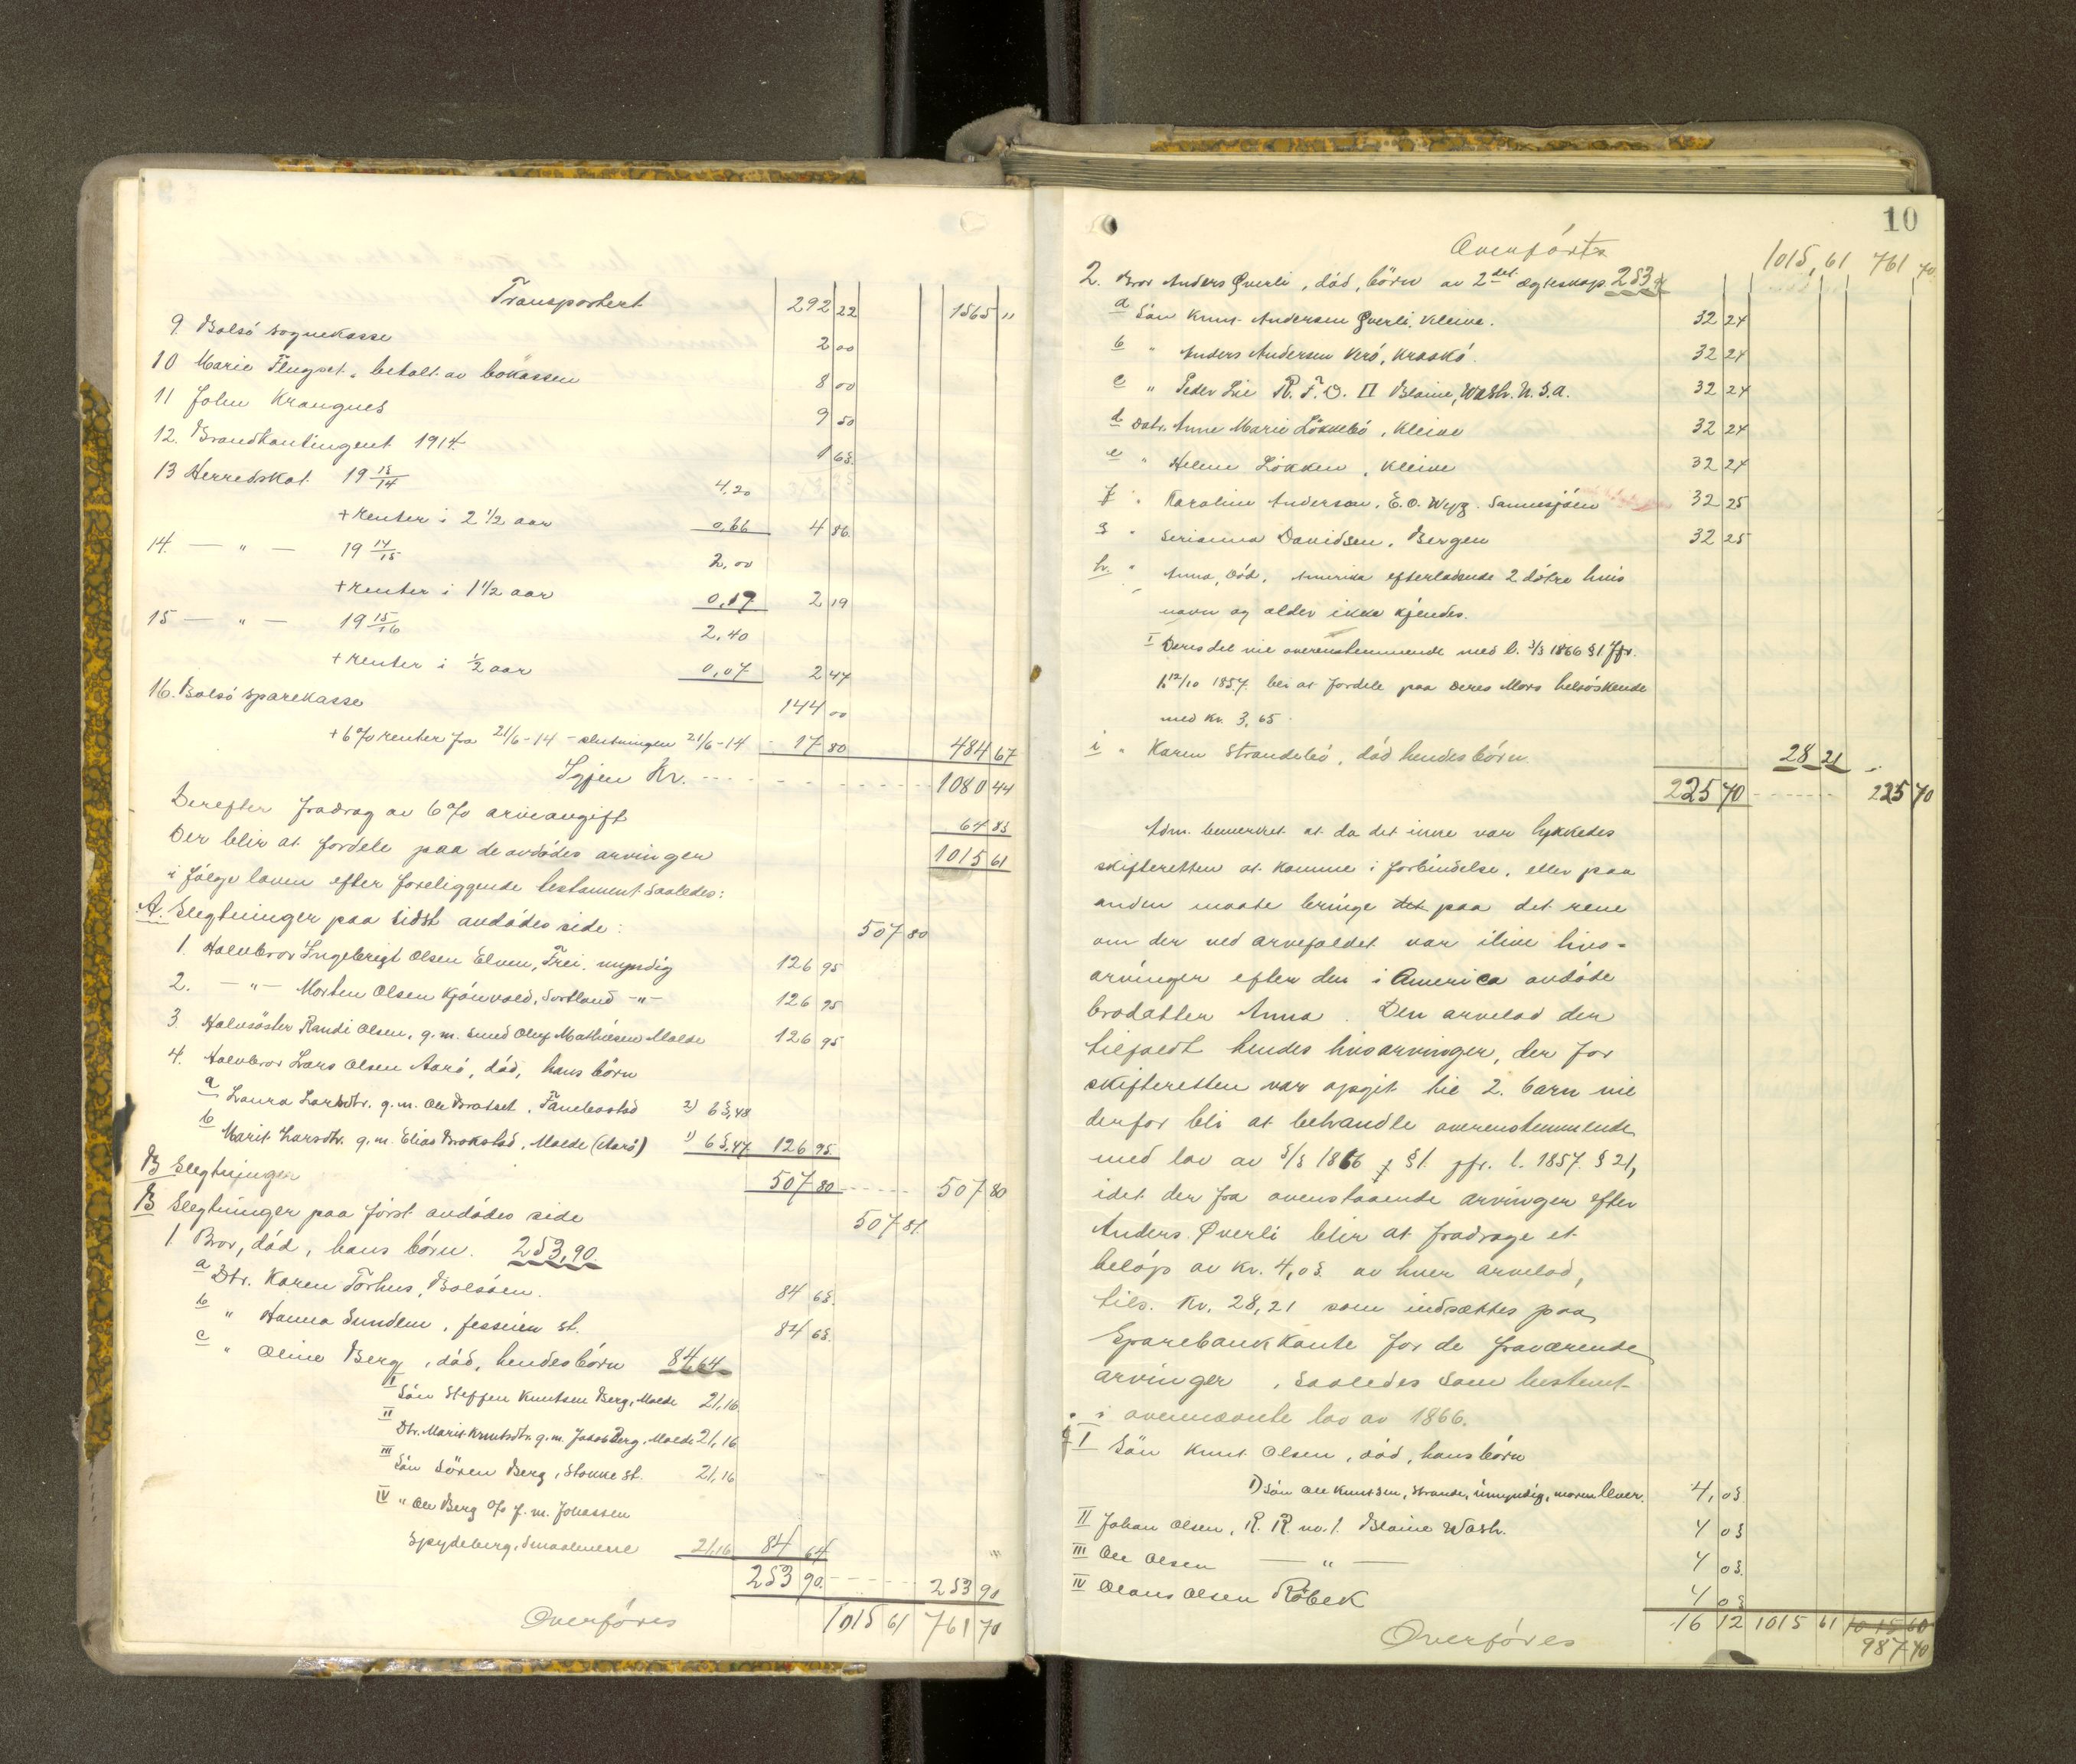 Transportert 292 22 1565 11
9. Bolsö sognekasse 2 00
10 Marie Flugset, betalt av bokassen 8 00
11 John Krangnes 9 50
12. Brandkontingent 1914 1 63
13 Herredskat 19 13/14 4,20
+ renter i 2 1/2 aar 0,66 4 86
14. — " — 19 14/15 2,00
+ renter i 1 1/2 aar 0,19 2 19
15 — " — 19 15/16 2,40
+ renter i 1/2 aar 0,07 2 47
16. Bolsö sparekasse 144 00
+ 6 % renter fra 21/6-14 - slutningen 21/6-14 17 80 484 67
Igjen Kr. 1080 44
Derefter fradrag av 6 % arveavgift 64 83
Der blir at fordele paa de avdödes arvinger 1015 61
i fölge loven efter foreliggende testament saaledes:
A. Slegtninger paa sidst avdödes side: 507 80
1. Halvbror Ingebrigt Olsen Elven, Frei, myndig 126 95
2. — " — Morten Olsen Kjönvold, Sortland - " - 126 95
3. Halvsöster Randi Olsen, g.m. Smed Oluf Mathiesen Molde 126 95
4. Halvbror Lars Olsen Aarö, död, hans börn
a Laura Larsdtr. g.m. Ole Bratset, Tanebostad 2) 63,48
b Marit Larsdtr. g.m. Elias Brokstad, Molde (Aarö) 1) 63,47 126 95
B Slegtninger 507 80 507 80
B Slegtninger paa först avdödes side 507 81
1. Bror, död, hans börn. 253,90
a Dtr. Karen Torhus, Bolsöen. 84 63
b " Hanna Sundem, Jessheim st. 84 63
c " Oline Berg, död, hendes börn 84,64
I Sön Steffen Knutsen Berg, Molde 21,16
II Dtr. Marit Knutsdtr. g.m. Jakob Berg, Molde 21,16
III Sön Sören Berg, Stokke st. 21,16
IV " Ole Berg c/o J. M. Johassen
Spydeberg, Smaalenene 21,16 84 64
253 90 253 90
Overföres 1015 61 761 70
10
Overförts 1015,61 761 70
2. Bror Anders Överli, död, börn av 2det egteskap. 253,91
a Sön Knut Andersen Överli, Kleive. 32 24
b " Anders Andersen Verö, Kraakö. 32 24
c " Peder Lie R.F.D. II Blaine, Wash. U.S.A. 32 24
d Datr. Anne Marie Lökkebö, Kleive 32 24
e " Helene Lökken, Kleive 32 24
f " Karoline Anderson, E.O. Wyg. Sannesjöen 32 25
g " Serianna Davidsen, Bergen 32 25
h. " Anna, död, Amerika efterladende 2 dötre hvis
navn og alder ikke kjendes.
I Deres del vil overensstemmende med l. 3/3 1866 § 1 Jfr.
l. 12/10 1857. bli at fordele paa deres Mors helsöskende
med kr. 3,65.
i " Karen Strandebö, död hendes börn. 28 21
225 70 225 70
Adm. bemerket at da det ikke var lykkedes
skifteretten at komme i forbindelse, eller paa
anden maate bringe det paa det rene
om der ved arvefaldet var ilive livs-
arvinger efter den i America avdöde
brodatter Anna. Den arvelod der
tilfaldt hendes livsarvinger, der for
skifteretten var opgit til 2. barn vil
derfor bli at behandle overensstemmende
med lov av 3/3 1866 § 1. jfr. l. 1857. § 21,
idet der fra ovenstaaende arvinger efter
Anders Överli blir at fradrage et
belöp av kr. 4,03 av hver arvelod,
tils. Kr. 28,21 som indsættes paa
Sparebankkonto for de fraværende
arvinger, saaledes som bestemt
i ovennævnte lov av 1866.
I Sön Knut Olsen, död, hans börn
1) Sön Ole Knutsen, Strande, umyndig, moren lever. 4,03
II Johan Olsen, R. R. no. 1. Blaine Wash. 4 03
III Ole Olsen — " — 4 03
IV Olaus Olsen Röbek 4 03
16 12 1015 61 1015 60
987 40
Overföres